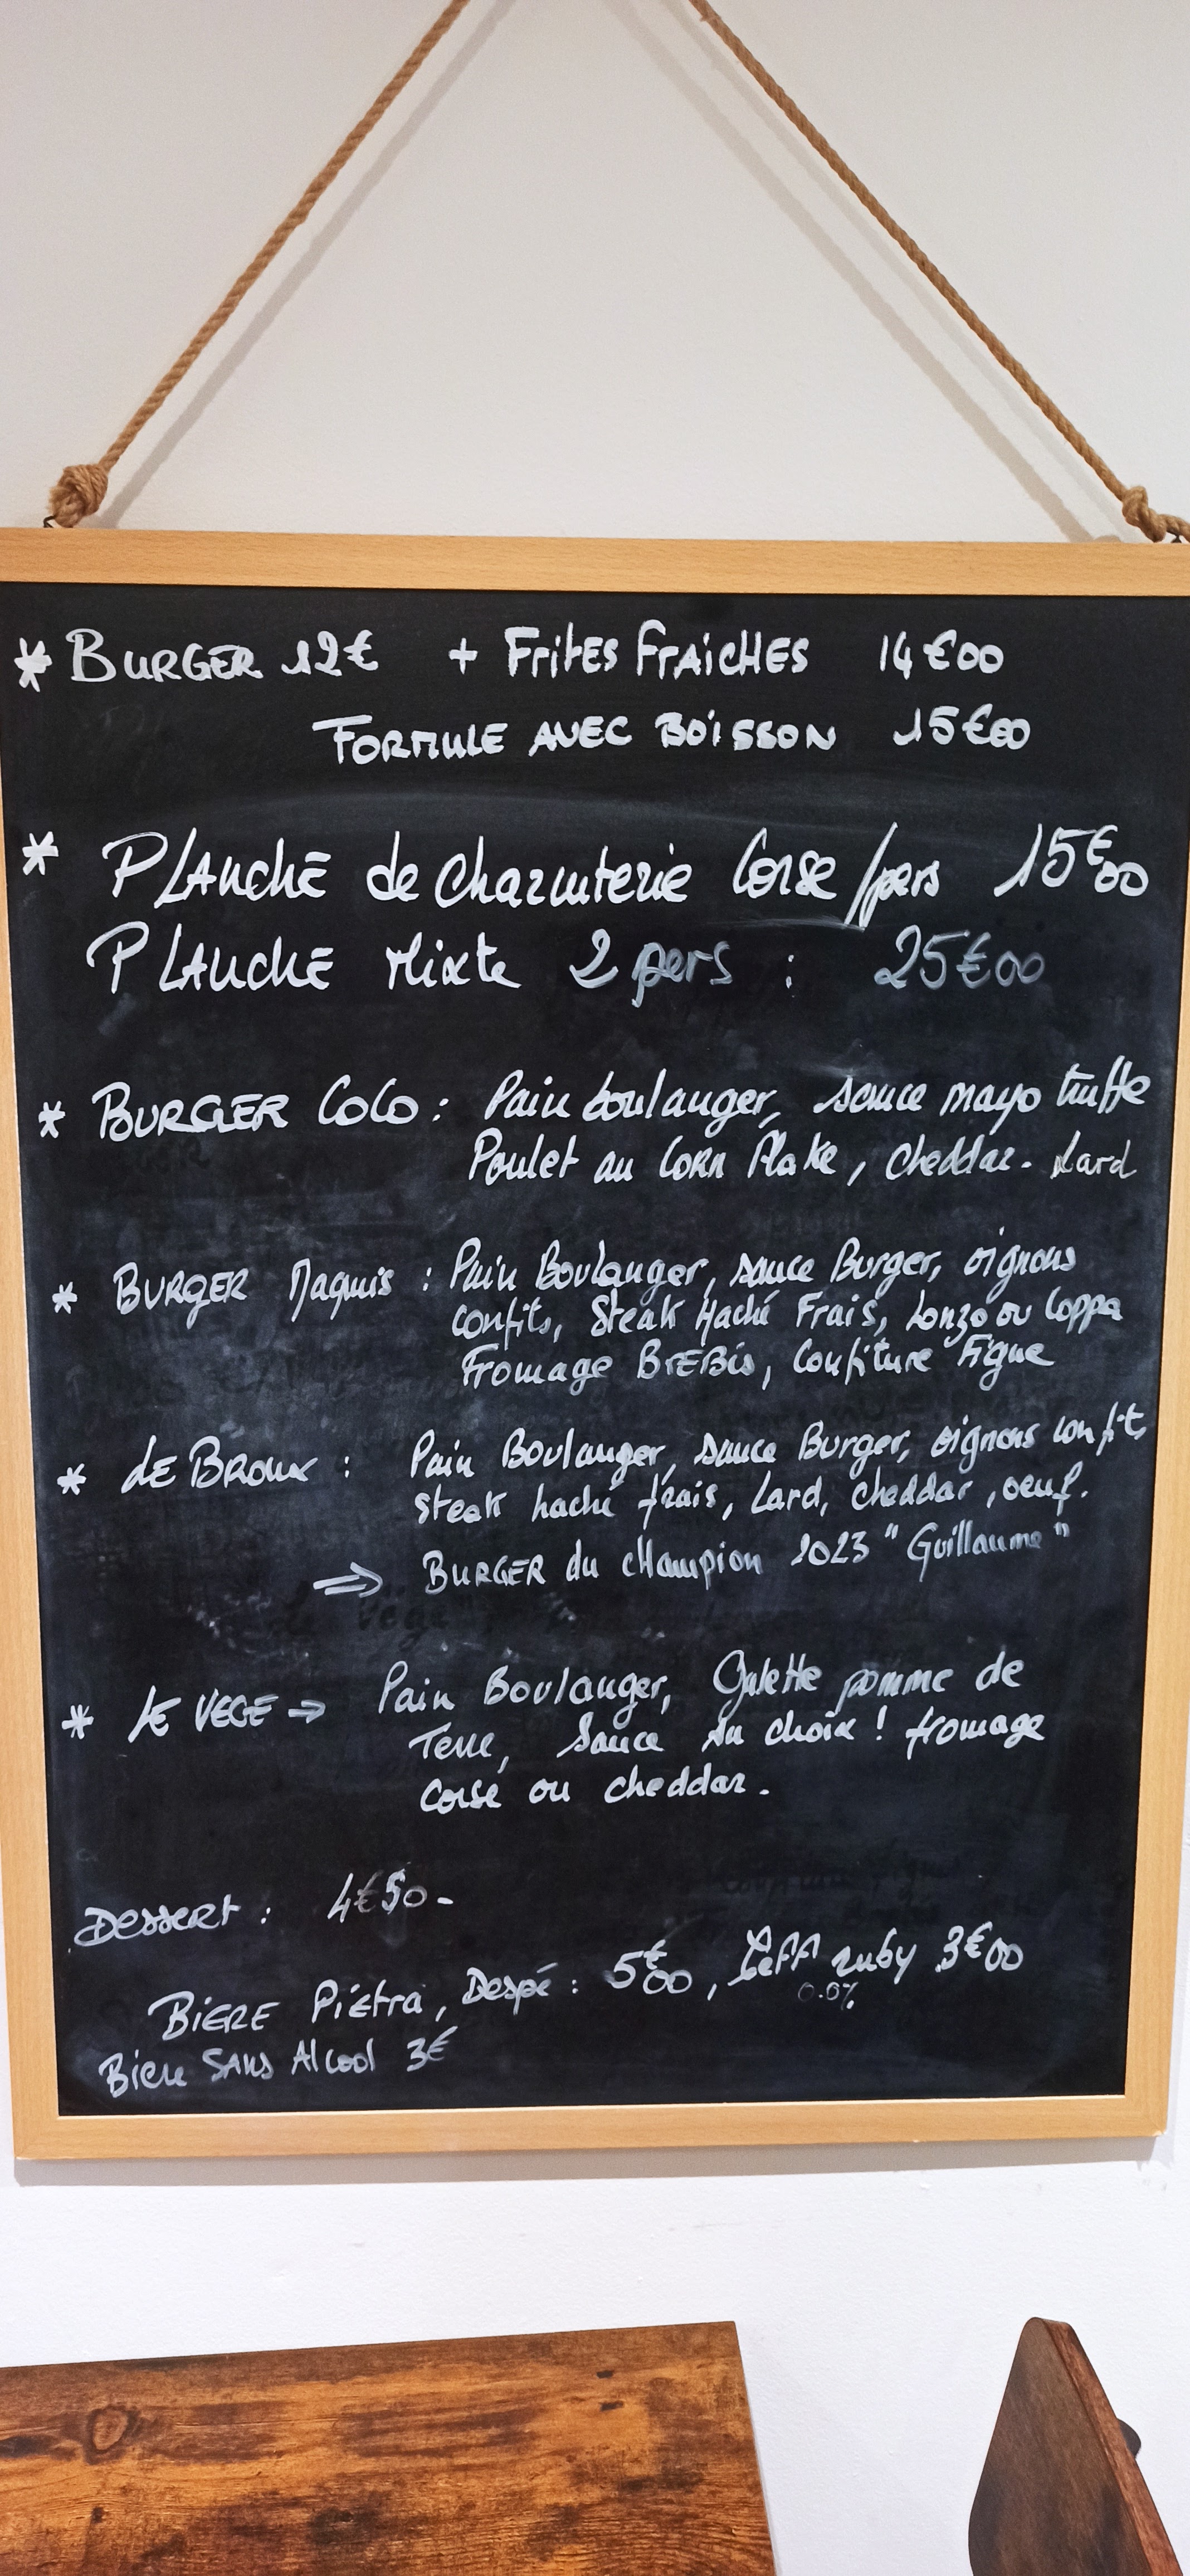 * BURGER 12€ + FRITES FRAICHES 14€00
FORMULE AVEC BOISSON 15€00
* PLANCHE de charcuterie Corse/pers 15€00
PLANCHE Mixte 2 pers : 25€00
* BURGER COCO : Pain boulanger, sauce mayo truffe
Poulet au Corn Flake, cheddar. Lard
* BURGER Maquis : Pain Boulanger, sauce Burger, oignons
confits, Steak Haché Frais, Lonzo ou Coppa
Fromage BREBIS, Confiture Figue
* LE BROUX : Pain Boulanger, sauce Burger, oignons confits
steak haché frais, Lard, cheddar, oeuf.
⇒ BURGER du champion 2023 "Guillaume"
* LE VEGE → Pain Boulanger, Galette pomme de
Terre, Sauce au choix ! fromage
corse ou cheddar.
Dessert : 4€50-
BIERE Piétra, Despé : 5€00, Leff ruby 3€00
0.0%
Biere SANS Alcool 3€